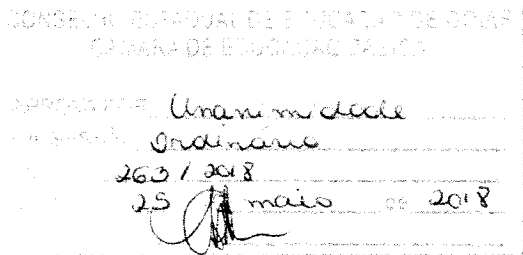 CONSELHO ESTADUAL DE EDUCAÇÃO DE GOIÁS
CÂMARA DE EDUCAÇÃO BÁSICA
APROVADO POR Unanimidade
Ordinário
263 / 2018
25 maio de 2018